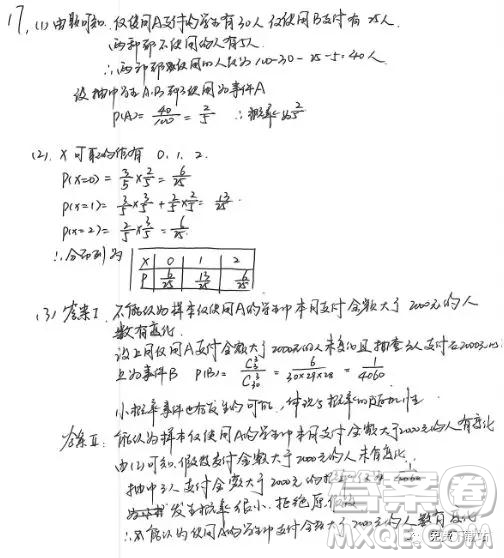 17, (1) 由题可知, 仅使用A支付的学生有30人 仅使用B支付有 25人.
两种都不使用的人有5人.
∴两种都使用的人数为 100-30-25-5=40人
设抽中为 A.B 都使用为事件A
P(A)= 40/100 = 2/5 ∴概率为 2/5
(2). X 可取的值有 0, 1, 2.
P(X=0) = 3/5 × 2/5 = 6/25
P(X=1) = 3/5 × 3/5 + 2/5 × 2/5 = 13/25
P(X=2) = 2/5 × 3/5 = 6/25
∴分布列为
X 0 1 2
P 6/25 13/25 6/25
(3) 答案I. 不能认为样本仅使用A的学生中本月支付金额大于 2000元的人
数有变化.
设上月仅用A支付金额大于2000元的人未变化且抽查3人支付在2000元以
上为事件B P(B)= C₃³/C₃₀³ = 6/30×29×28 = 1/4060
小概率事件也有发生的可能, 体现了概率的随机性
答案II: 能认为样本仅使用A的学生中本月支付金额大于2000元的人有变化
由(2)可知. 假设支付金额大于2000元的人未有变化.
抽中3人支付金额大于2000元的
发生概率很小. 拒绝原假设
能认为仅使用A的学生中支付金额大于2000元的人数有变化
答案圈